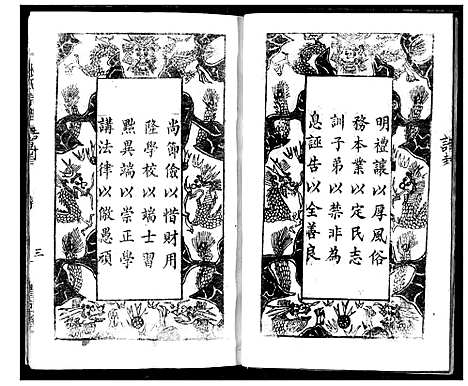 誥封
明禮讓以厚風俗
務本業以定民志
訓子弟以禁非為
息誣告以全善良
尚節儉以惜財用
隆學校以端士習
黜異端以崇正學
講法律以儆愚頑
三